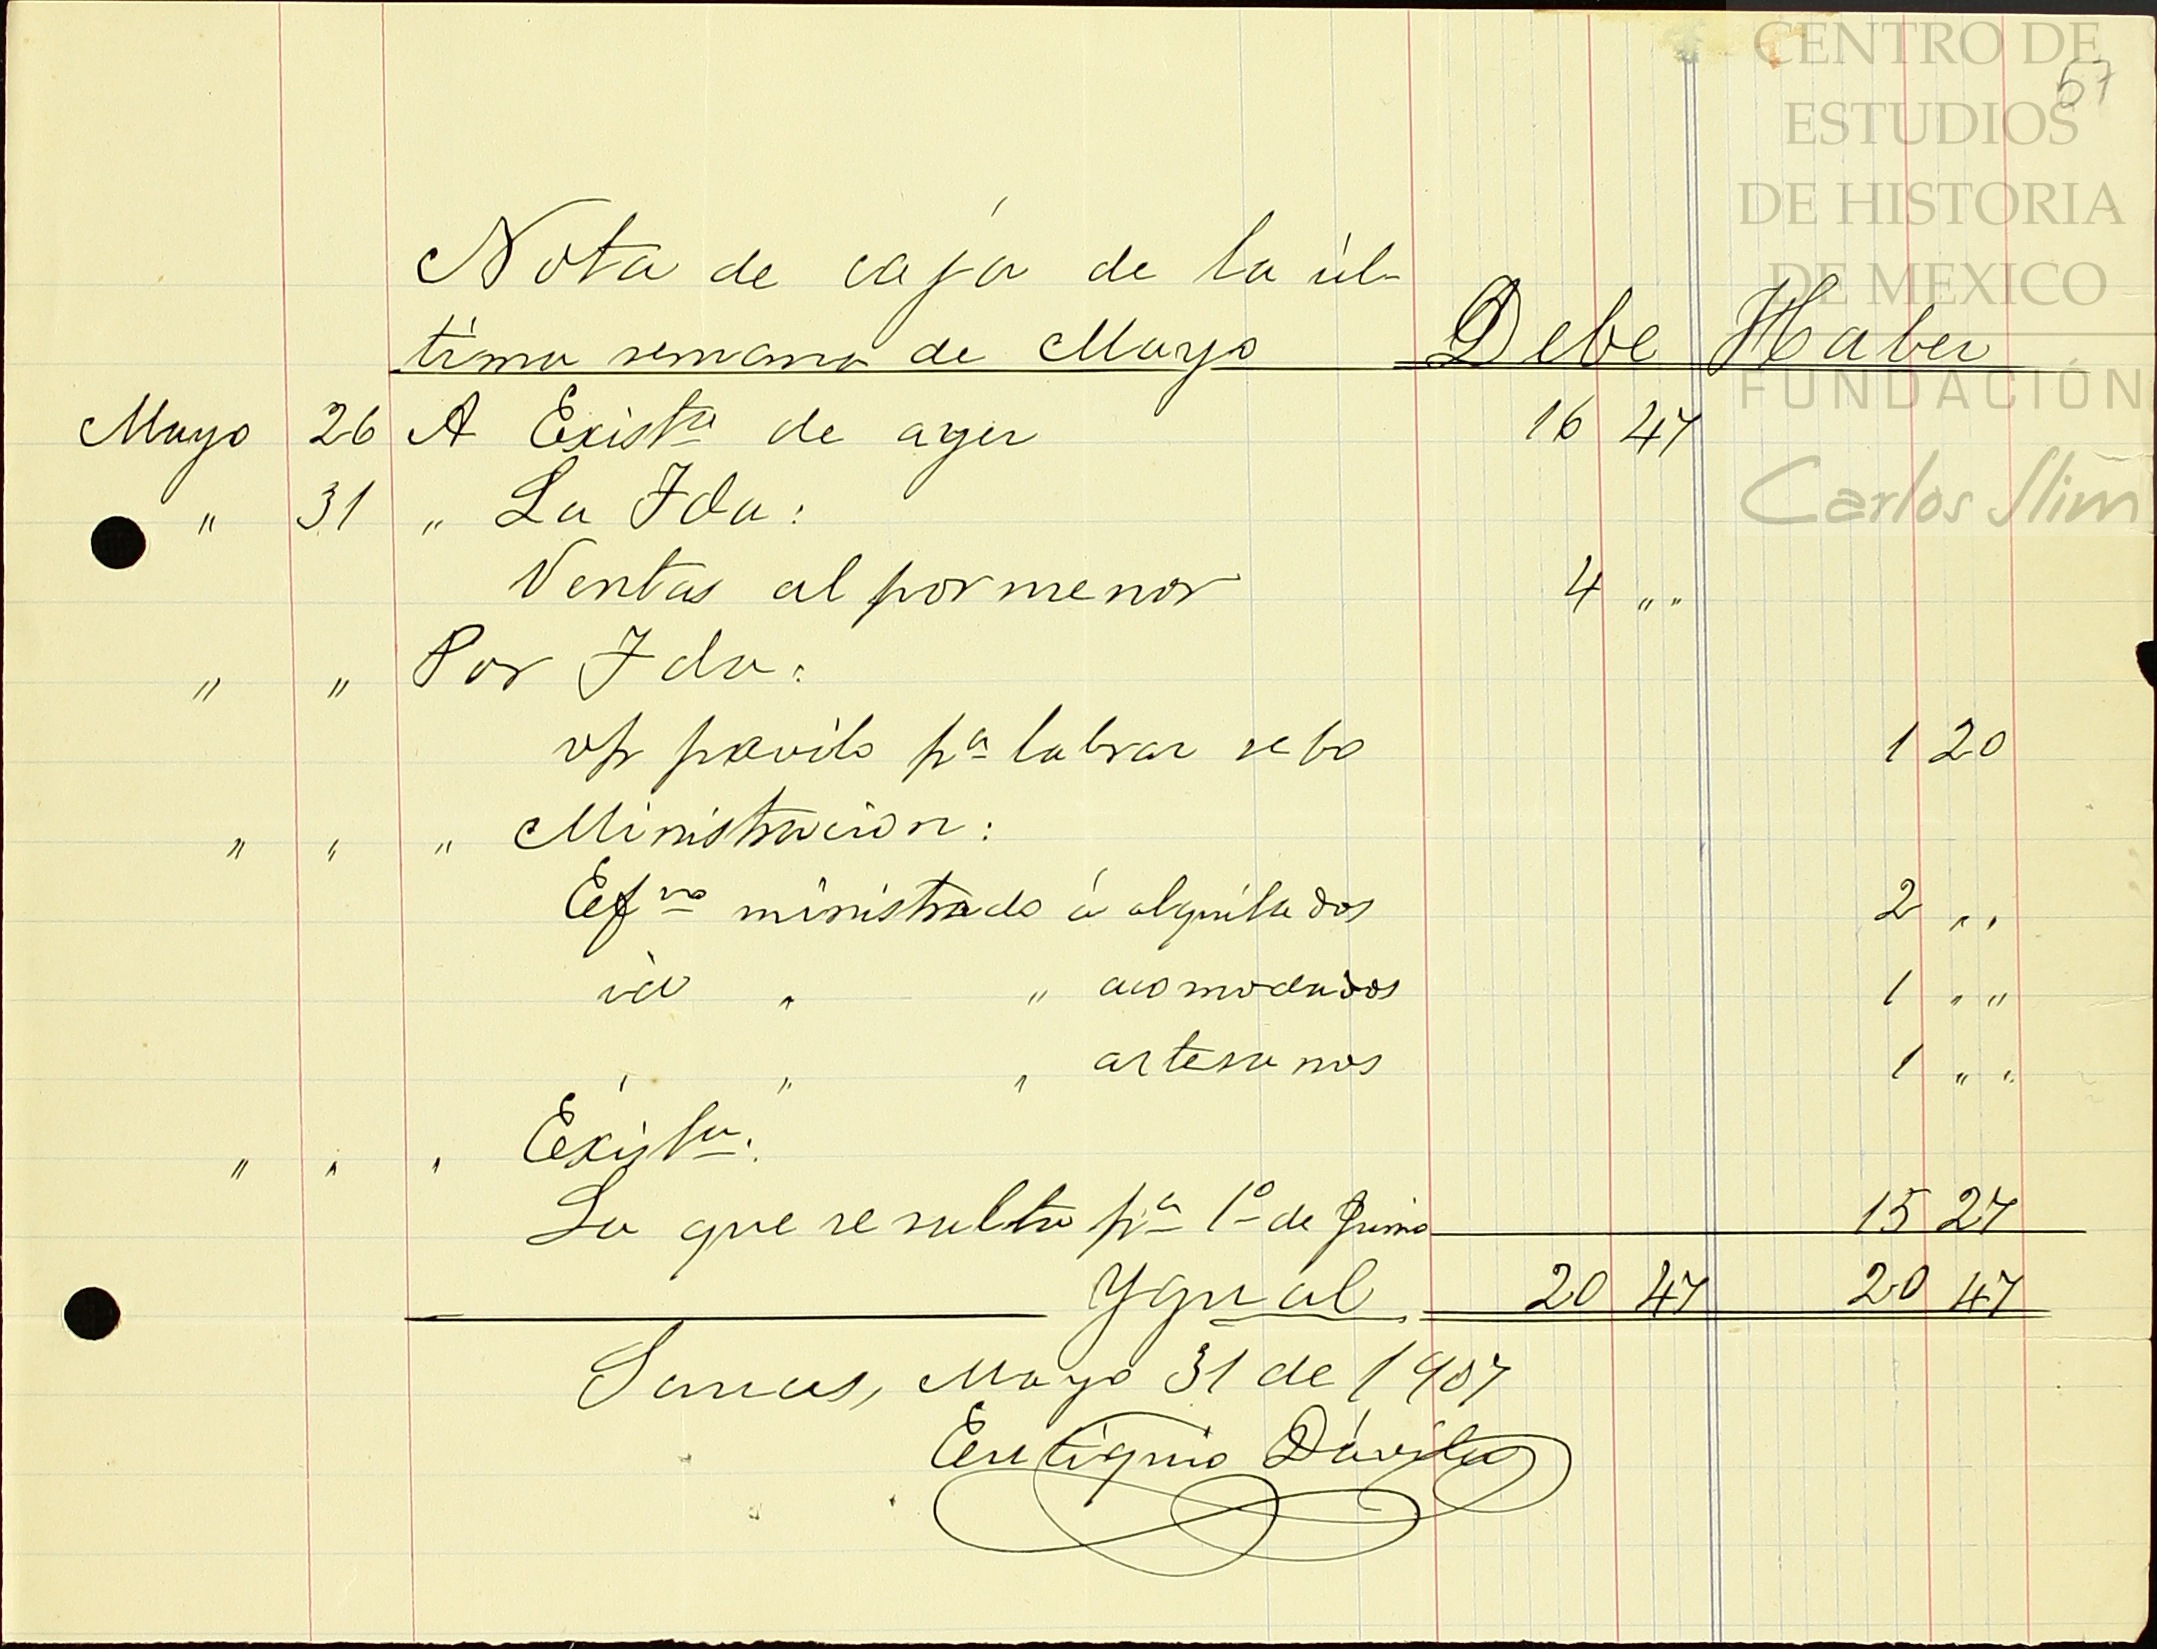 CENTRO DE
ESTUDIOS
DE HISTORIA
DE MEXICO
FUNDACIÓN
Carlos Slim
57
Nota de caja de la úl-
tima semana de Mayo Debe Haber
Mayo 26 A Existª de ayer 16 47
" 31 " La Fda:
Ventas al por menor 4 " "
" " Por Fda:
v/p pavilo pª labrar sebo 1 20
" " " Ministracion:
Efvo ministrado á alquilados 2 " "
id " " acomodados 1 " "
" " " artesanos 1 " "
" " " Existª:
La que resulta pª 1º de Junio 15 27
Ygual 20 47 20 47
Mayo 31 de 1907
Eutiquio Dávila